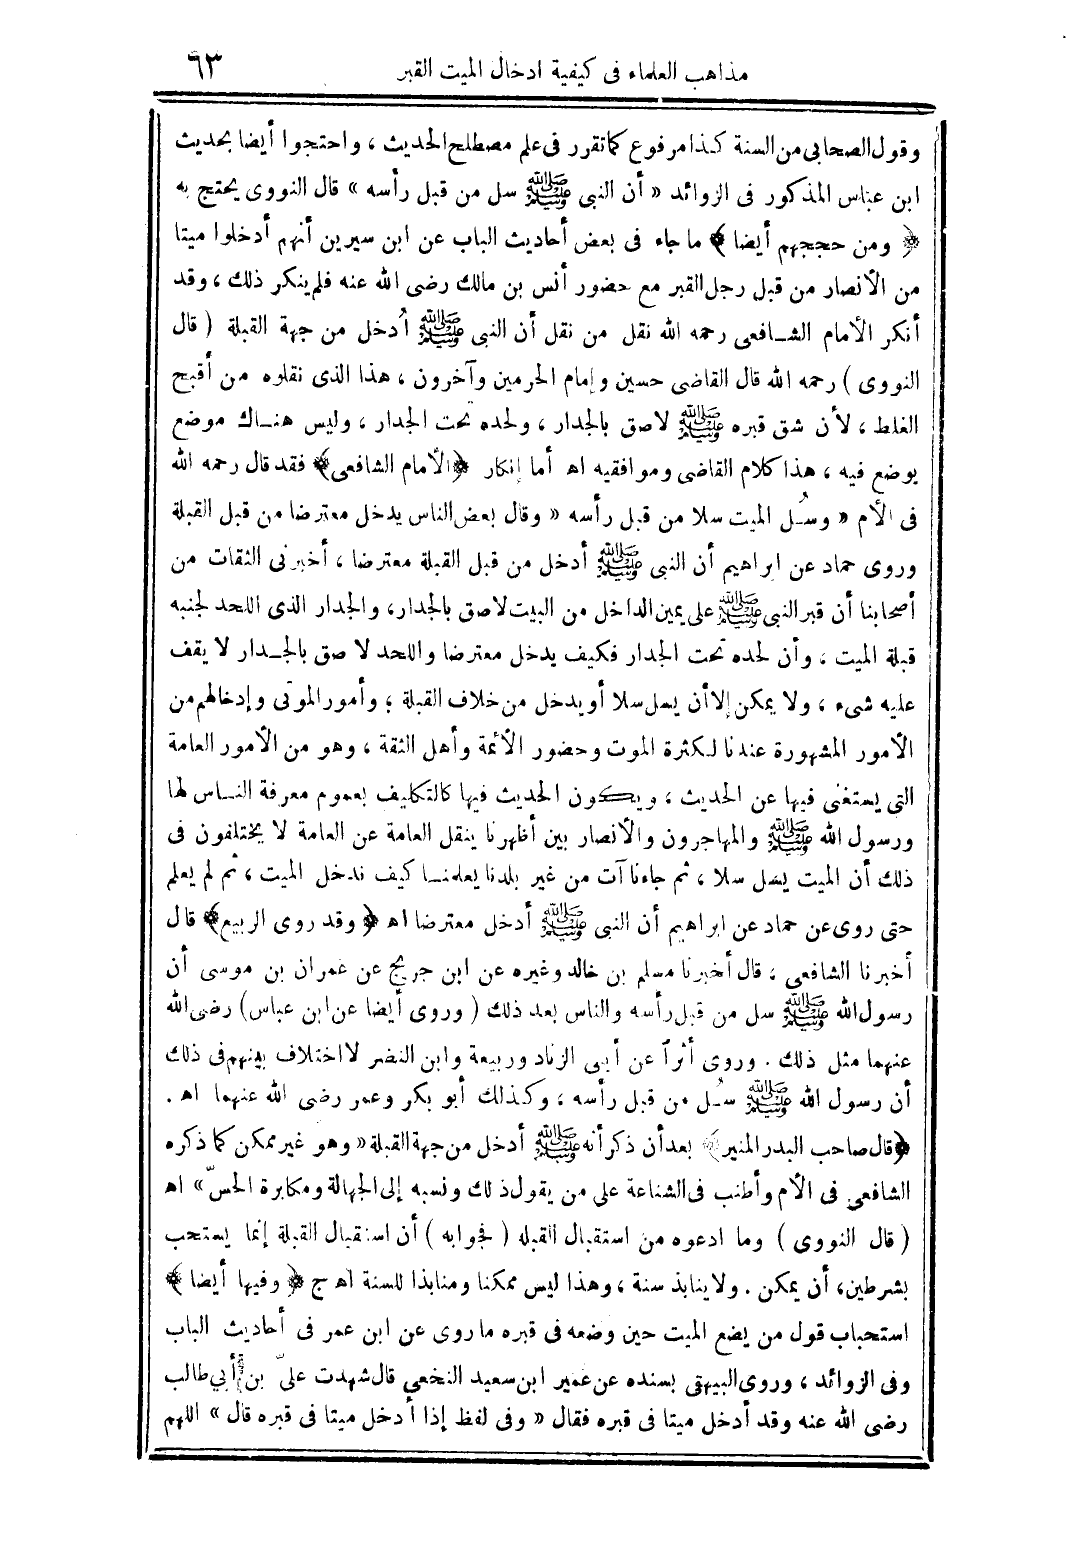 مذاهب العلماء فى كيفية ادخال الميت القبر ٦٣
وقول الصحابى من السنة كذا مرفوع كما تقرر فى علم مصطلح الحديث ، واحتجوا أيضا بحديث
ابن عباس المذكور فى الزوائد « أن النبى ﷺ سل من قبل رأسه » قال النووى يحتج به
﴿ ومن حججهم أيضا ﴾ ما جاء فى بعض أحاديث الباب عن ابن سيرين أنهم أدخلوا ميتا
من الأنصار من قبل رجل القبر مع حضور أنس بن مالك رضى الله عنه فلم ينكر ذلك ، وقد
أنكر الأمام الشافعى رحمه الله نقل من نقل أن النبى ﷺ أدخل من جهة القبلة ( قال
النووى ) رحمه الله قال القاضى حسين وإمام الحرمين وآخرون ، هذا الذى نقلوه من أقبح
الغلط ، لأن شق قبره ﷺ لاصق بالجدار ، ولحده تحت الجدار ، وليس هناك موضع
يوضع فيه ، هذا كلام القاضى وموافقيه اه أما إنكار ﴿ الأمام الشافعى ﴾ فقد قال رحمه الله
فى الأم « وسُل الميت سلا من قبل رأسه « وقال بعض الناس يدخل معترضا من قبل القبلة
وروى حماد عن ابراهيم أن النبى ﷺ أدخل من قبل القبلة معترضا ، أخبرنى الثقات من
أصحابنا أن قبر النبى ﷺ على يمين الداخل من البيت لاصق بالجدار، والجدار الذى اللحد لجنبه
قبلة الميت ، وأن لحده تحت الجدار فكيف يدخل معترضا واللحد لاصق بالجدار لا يقف
عليه شىء ، ولا يمكن إلا أن يسل سلا أو يدخل من خلاف القبلة ؛ وأمور الموتى وإدخالهم من
الأمور المشهورة عندنا لكثرة الموت وحضور الأئمة وأهل الثقة ، وهو من الأمور العامة
التى يستغنى فيها عن الحديث ، ويكون الحديث فيها كالتكليف بعموم معرفة الناس لها
ورسول الله ﷺ والمهاجرون والأنصار بين أظهرنا ينقل العامة عن العامة لا يختلفون فى
ذلك أن الميت يسل سلا ، ثم جاءنا آت من غير بلدنا يعلمنا كيف ندخل الميت ، ثم لم يعلم
حتى روى عن حماد عن ابراهيم أن النبى ﷺ أدخل معترضا اه ﴿ وقد روى الربيع ﴾ قال
أخبرنا الشافعى ، قال أخبرنا مسلم بن خالد وغيره عن ابن جريج عن عمران بن موسى أن
رسول الله ﷺ سل من قبل رأسه والناس بعد ذلك ( وروى أيضا عن ابن عباس) رضى الله
عنهما مثل ذلك . وروى أثراً عن أبى الزناد وربيعة وابن النضر لا اختلاف بينهم فى ذلك
أن رسول الله ﷺ سُل من قبل رأسه ، وكذلك أبو بكر وعمر رضى الله عنهما اه .
﴿ قال صاحب البدر المنير ﴾ بعد أن ذكر أنه ﷺ أدخل من جهة القبلة « وهو غير ممكن كما ذكره
الشافعى فى الأم وأطنب فى الشناعة على من يقول ذلك ونسبه إلى الجهالة ومكابرة الحسّ » اه
( قال النووى ) وما ادعوه من استقبال القبله ( فجوابه ) أن استقبال القبلة إنما يستحب
بشرطين، أن يمكن . ولا ينابذ سنة ، وهذا ليس ممكنا ومنابذا للسنة اه ج ﴿ وفيها أيضا ﴾
استحباب قول من يضع الميت حين وضعه فى قبره ما روى عن ابن عمر فى أحاديث الباب
وفى الزوائد ، وروى البيهقى بسنده عن عمير ابن سعيد النخعى قال شهدت علىّ بن أبي طالب
رضى الله عنه وقد أدخل ميتا فى قبره فقال « وفى لفظ إذا أدخل ميتا فى قبره قال » اللهم